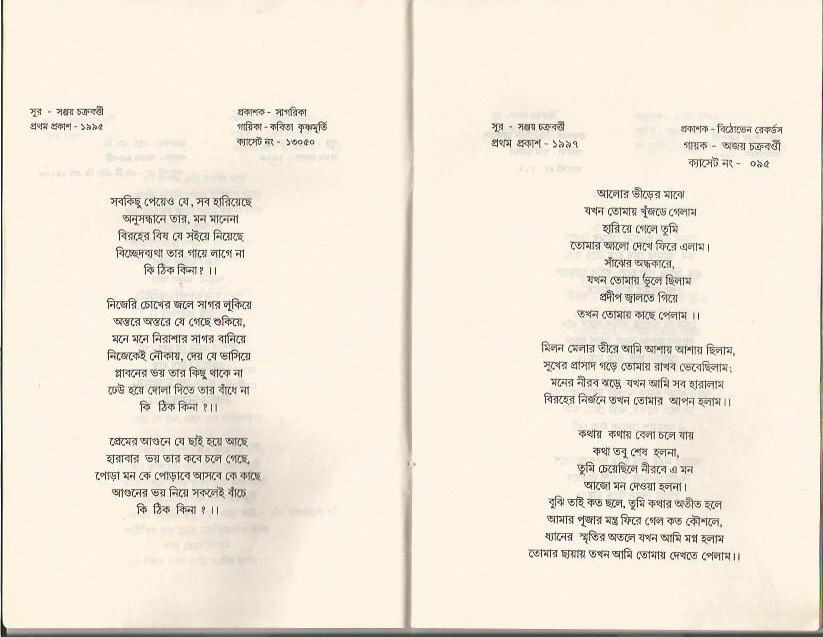 সুর - সঞ্জয় চক্রবর্ত্তী
প্রথম প্রকাশ - ১৯৯৫
প্রকাশক - সাগরিকা
গায়িকা - কবিতা কৃষ্ণমূর্তি
ক্যাসেট নং - ১৩০৫০
সবকিছু পেয়েও যে, সব হারিয়েছে
অনুসন্ধানে তার, মন মানেনা
বিরহের বিষ যে সইয়ে নিয়েছে
বিচ্ছেদব্যথা তার গায়ে লাগে না
কি ঠিক কিনা? ।।
নিজেরি চোখের জলে সাগর লুকিয়ে
অন্তরে অন্তরে যে গেছে শুকিয়ে,
মনে মনে নিরাশার সাগর বানিয়ে
নিজেকেই নৌকায়, দেয় যে ভাসিয়ে
প্লাবনের ভয় তার কিছু থাকে না
ঢেউ হয়ে দোলা দিতে তার বাঁধে না
কি ঠিক কিনা ?।।
প্রেমের আগুনে যে ছাই হয়ে আছে
হারাবার ভয় তার কবে চলে গেছে,
পোড়া মন কে পোড়াবে আসবে কে কাছে
আগুনের ভয় নিয়ে সকলেই বাঁচে
কি ঠিক কিনা ? ।।
সুর - সঞ্জয় চক্রবর্ত্তী
প্রথম প্রকাশ - ১৯৯৭
প্রকাশক - বিঠোভেন রেকর্ডস
গায়ক - অজয় চক্রবর্ত্তী
ক্যাসেট নং - ০৯৫
আলোর ভীড়ের মাঝে
যখন তোমায় খুঁজতে গেলাম
হারিয়ে গেলে তুমি
তোমার আলো দেখে ফিরে এলাম।
সাঁঝের অন্ধকারে,
যখন তোমায় ভুলে ছিলাম
প্রদীপ জ্বালতে গিয়ে
তখন তোমায় কাছে পেলাম ।।
মিলন মেলার তীরে আমি আশায় আশায় ছিলাম,
সুখের প্রাসাদ গড়ে তোমায় রাখব ভেবেছিলাম;
মনের নীরব ঝড়ে যখন আমি সব হারালাম
বিরহের নির্জনে তখন তোমার আপন হলাম।।
কথায় কথায় বেলা চলে যায়
কথা তবু শেষ হলনা,
তুমি চেয়েছিলে নীরবে এ মন
আজো মন দেওয়া হলনা।
বুঝি তাই কত ছলে, তুমি কথার অতীত হলে
আমার পূজার মন্ত্র ফিরে গেল কত কৌশলে,
ধ্যানের স্মৃতির অতলে যখন আমি মগ্ন হলাম
তোমার ছায়ায় তখন আমি তোমায় দেখতে পেলাম।।